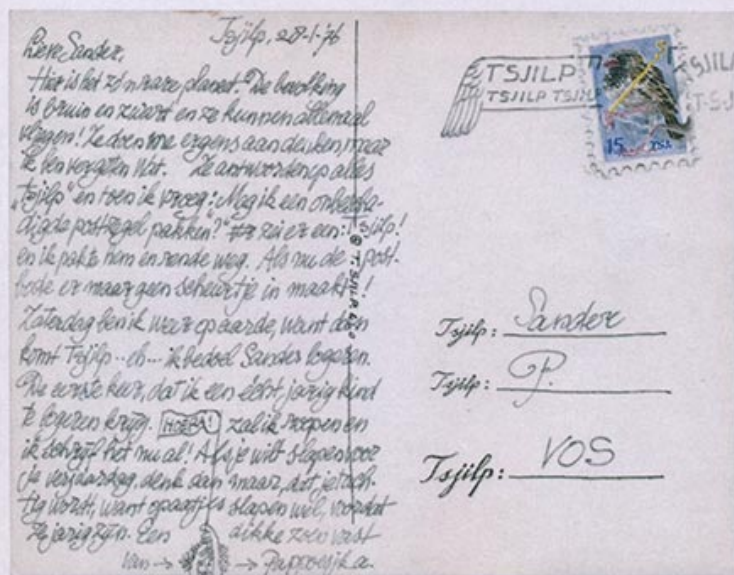 Tsjilp, 28-1-'76
Lieve Sander,
Hier is het zo'n rare planeet. De bevolking
is bruin en zwart en ze kunnen allemaal
vliegen! Ze doen me ergens aan denken, maar
ik ben vergeten wat. Ze antwoorden op alles
"Tsjilp" en toen ik vroeg: "Mag ik een onbescha-
digde postzegel pakken?" zei er een: Tsjilp!
en ik pakte hem en rende weg. Als nu de post-
bode er maar geen scheurtje in maakt!
Zaterdag ben ik weer op aarde, want dan
komt Tsjilp..eh... ik bedoel Sander logeren.
De eerste keer, dat ik een écht, jarig kind
te logeren krijg. HOERA! zal ik roepen en
ik schrijf het nu al! Als je wilt slapen voor
je verjaardag, denk dan maar, dat je tach-
tig wordt, want opaatjes slapen wel, voordat
ze jarig zijn. Een dikke zoen vast
van → → Pappoesjka.
TSJILP
TSJILP TSJILP
TSJILP
15 TSJ.
Tsjilp: Sander
Tsjilp: P.
Tsjilp: VOS